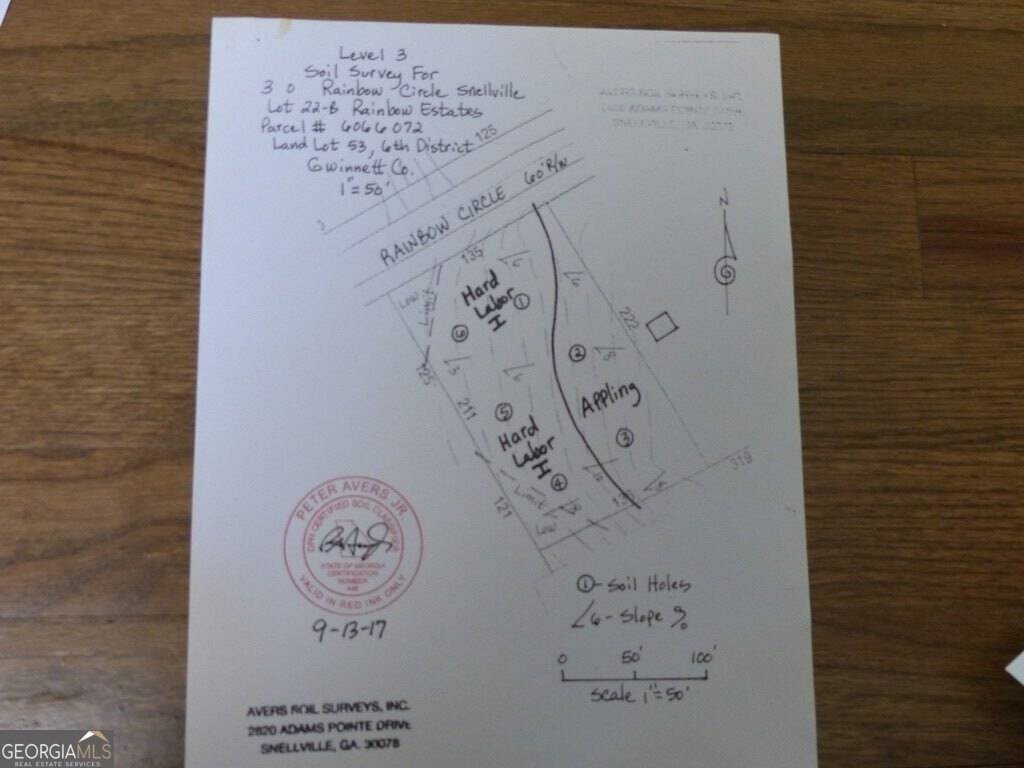 Level 3
Soil Survey For
3 0 Rainbow Circle Snellville
Lot 22-B Rainbow Estates
Parcel # 6066072
Land Lot 53, 6th District
Gwinnett Co.
1"=50'
125
RAINBOW CIRCLE 60' R/W
N
135
6
Low
Hard
Labor
I
1
6
222
6
2
5
3
6
125
211
5
Appling
3
Hard
Labor
I
4
319
121
8
PETER AVERS JR.
DPH CERTIFIED SOIL CLASSIFIER
STATE OF GEORGIA
CERTIFICATION
NUMBER
VALID IN RED INK ONLY
9-13-17
1 - Soil Holes
6 - Slope %
0 50' 100'
Scale 1"=50'
AVERS SOIL SURVEYS, INC.
2820 ADAMS POINTE DRIVE
SNELLVILLE, GA. 30078
GEORGIAMLS
REAL ESTATE SERVICES